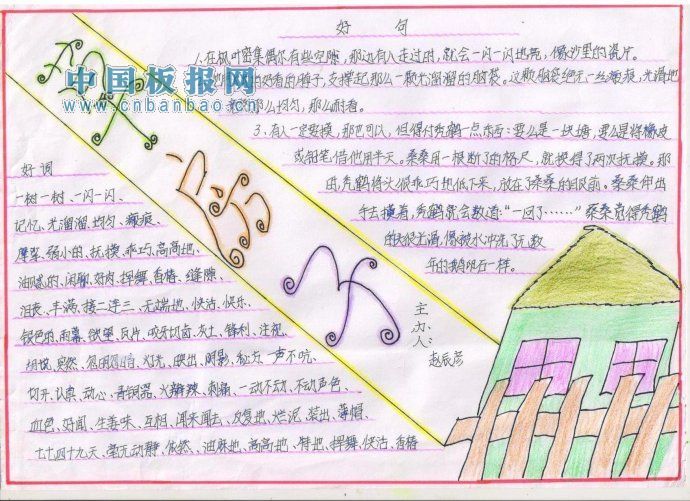 好 句
1、在枫叶密集偶尔有些空隙，那边有人走过时，就会一闪一闪地亮，像沙里的瓷片。
支撑起那么一颗光溜溜的脑袋。这颗脑袋绝无一丝瘢痕，光滑地
那么均匀，那么耐看。
3、有人一定要摸，那也可以，但得付秃鹤一点东西：要么是一块糖，要么是将橡皮
或铅笔借他用半天。桑桑用一根断了的格尺，就换得了两次抚摸。那
时，秃鹤将头很乖巧地低下来，放在了桑桑的眼前。桑桑伸出
手去摸着，秃鹤就会数道：“一回了……”桑桑觉得秃鹤
的头很光滑，像被水冲洗了无数
年的鹅卵石一样。
中国板报网
www.cnbanbao.cn
草房子
好词
一树一树、一闪一闪、
记忆、光溜溜、均匀、瘢痕、
弱小的、抚摸、乖巧、高高地、
油腻的、闲聊、好肉、挥舞、香椿、缝隙、
泪丧、丰满、接二连三、无端地、快活、快乐、
银色的、雨幕、欲望、瓦片、咬牙切齿、灰土、锋利、注视、
灯光、映出、阴影、一声不吭、
切开、认真、动心、青铜器、火辣辣、刺痛、一动不动、不动声色、
血色、好闻、生姜味、互相、闻来闻去、反复地、烂泥、装出、薄帽、
七十四十九天、毫无动静、依然、油麻地、高高地、特地、挥舞、快活、香椿
主办人：
赵辰彦